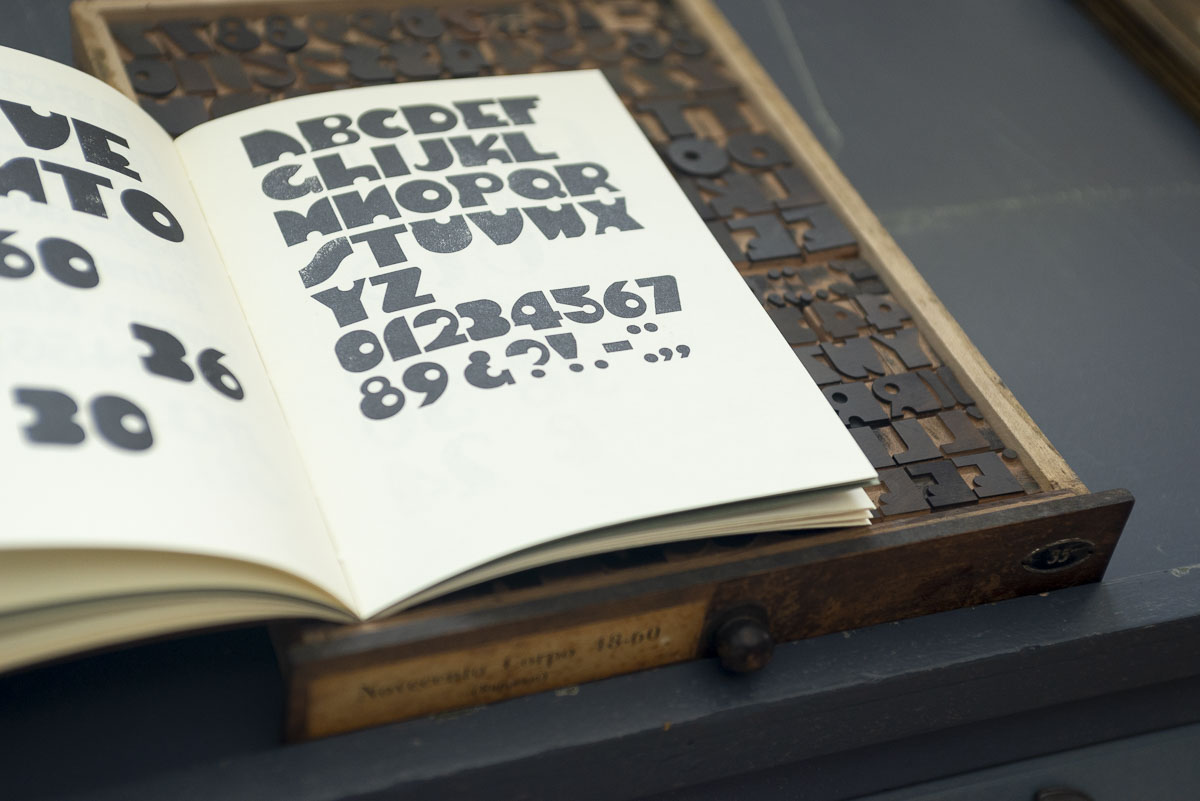 VE
NTO
60
36
30
ABCDEF
GHIJKL
MNOPQR
STUVWX
YZ
01234567
89&?!.-¨.,,,
35
Novecento Corpo 48-60